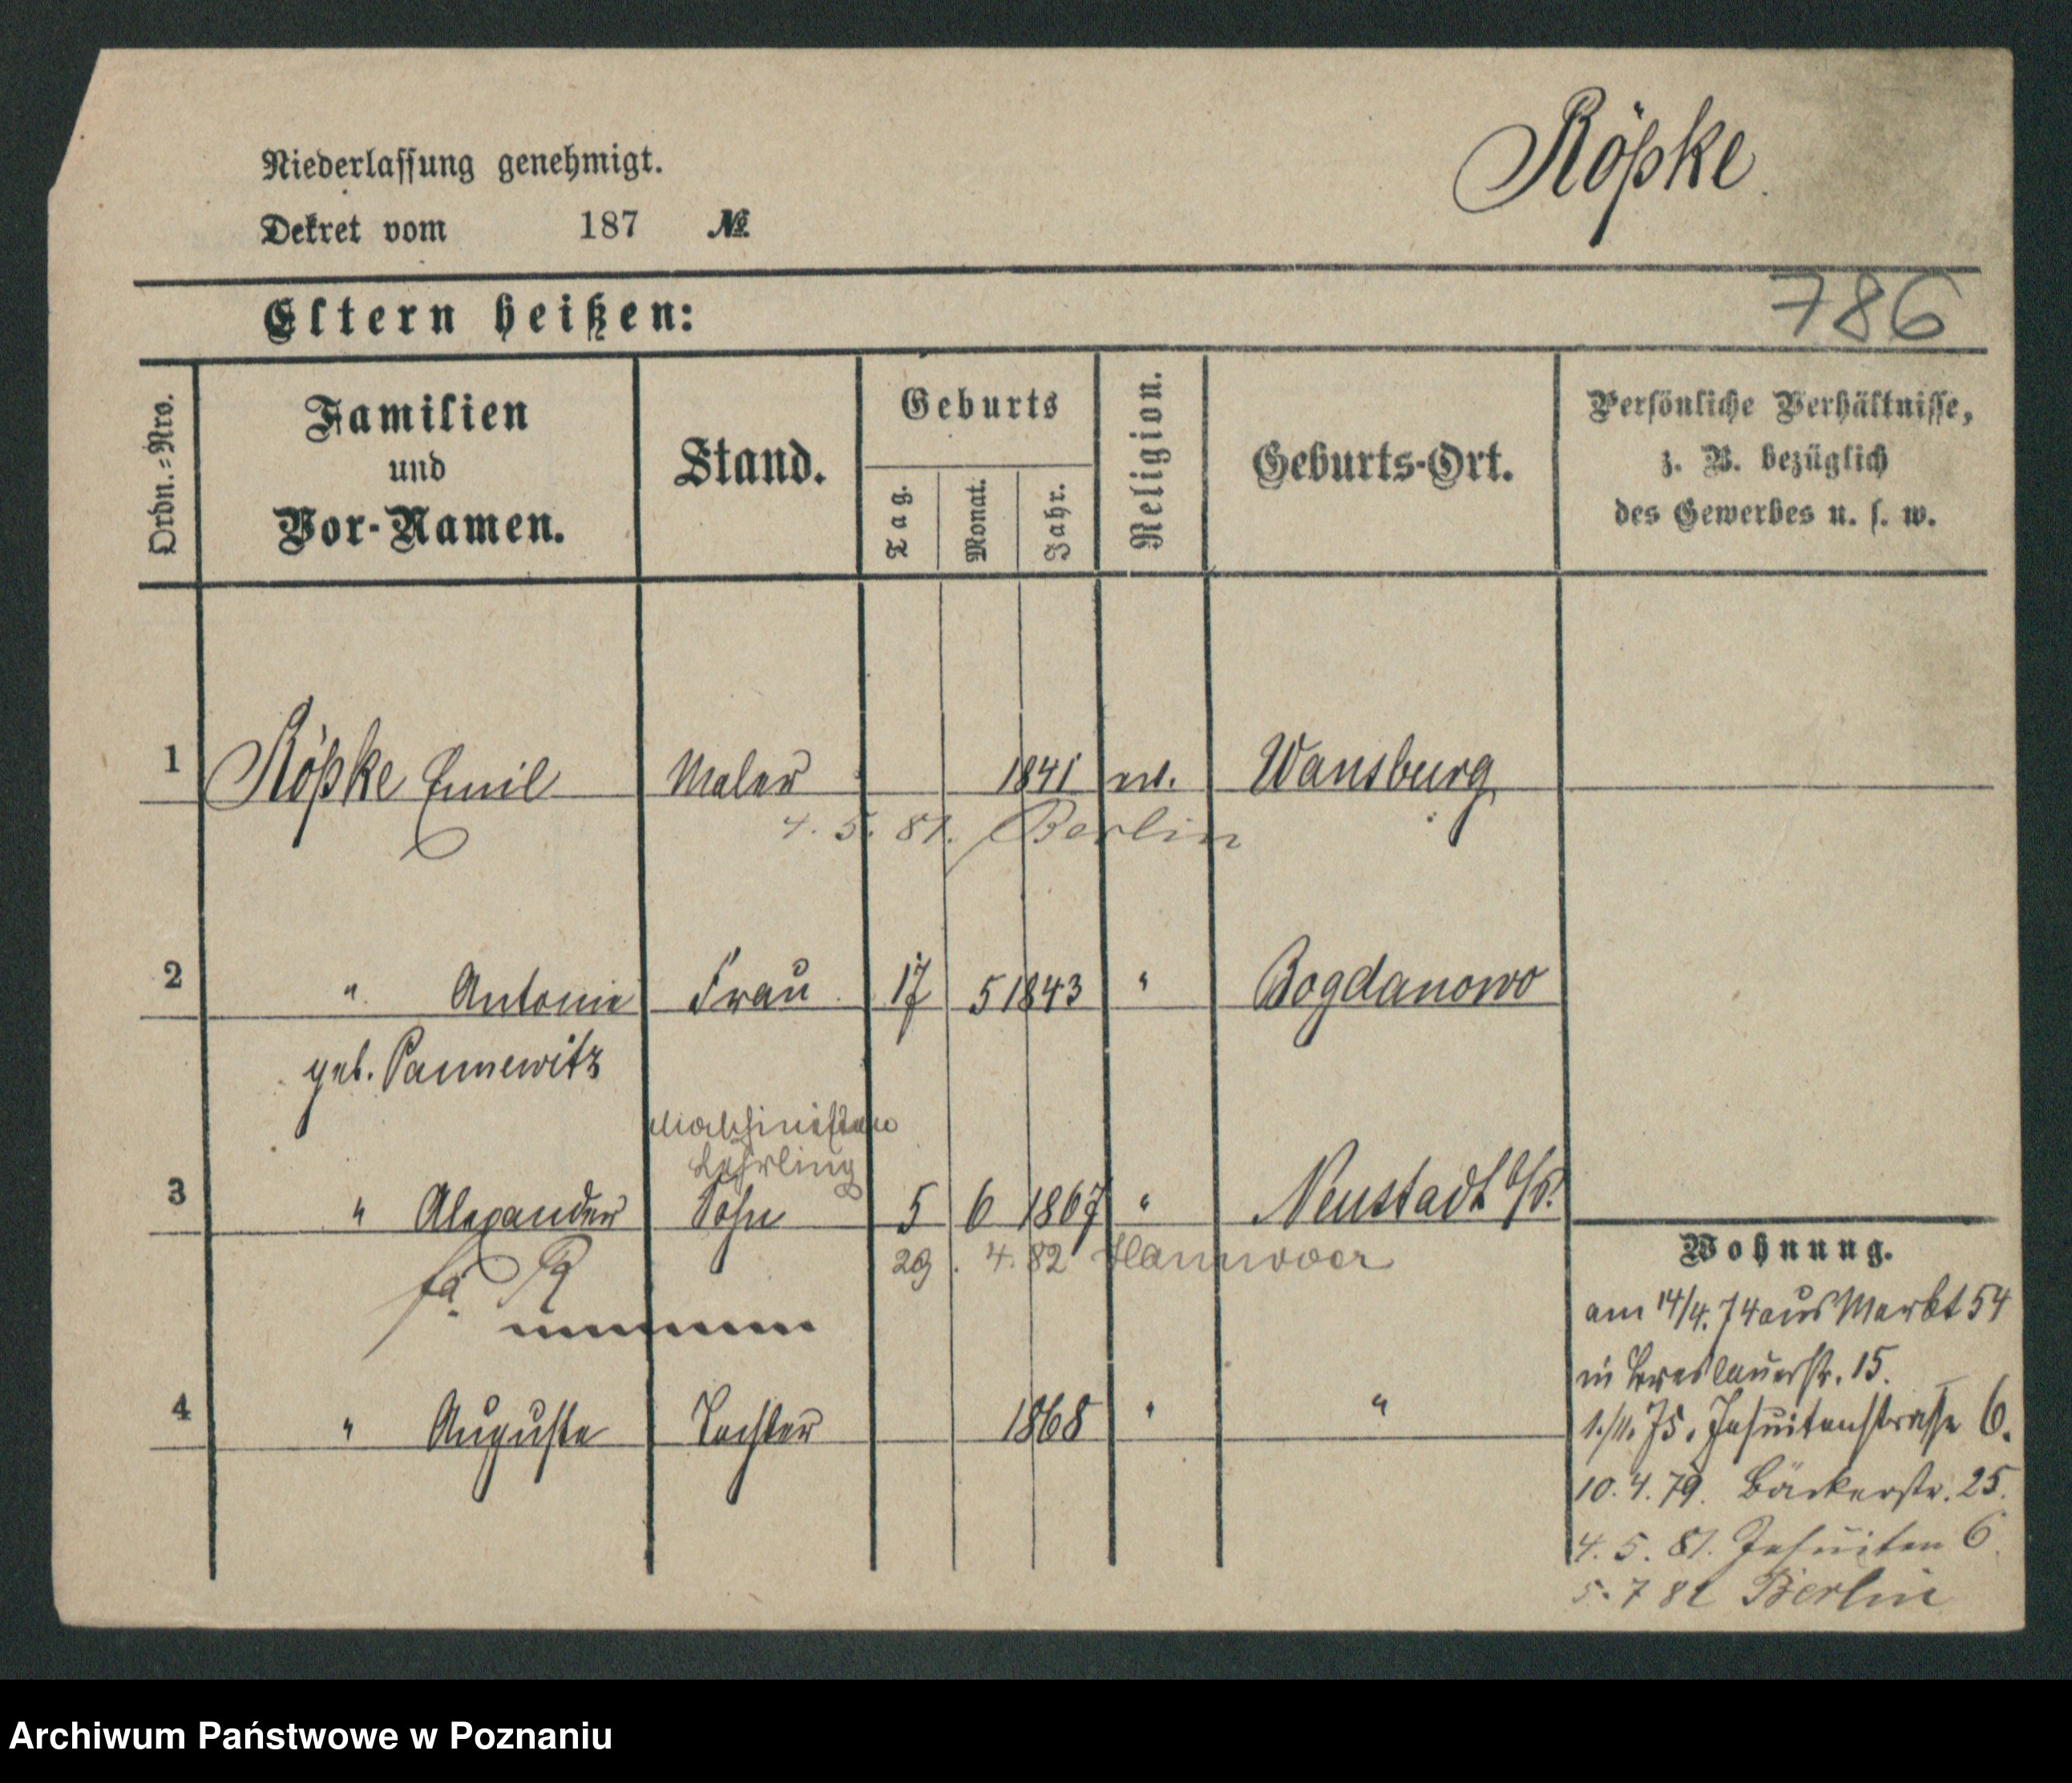 Röpke
Niederlassung genehmigt.
Dekret vom 187 №
786
Eltern heißen:
Ordn.-Nro. Familien und Vor-Namen. Stand. Geburts Tag. Monat. Jahr. Religion. Geburts-Ort. Persönliche Verhältnisse, z. B. bezüglich des Gewerbes u. s. w.
1 Röpke Emil Maler 1841 ev. Wansburg
4. 5. 81. Berlin
2 " Antonie Frau 17 5 1843 " Bogdanowo
geb. Pannewitz
Maschinisten
Lehrling
3 " Alexander Sohn 5 6 1867 " Neustadt b/P.
29. 4. 82 Hannover
4 " Auguste Tochter 1868 " "
Wohnung.
am 14/4. 74 aus Markt 54
in Breslauerstr. 15.
1./11. 75. Jesuitenstrasse 6.
10. 4. 79. Bäckerstr. 25.
4. 5. 81. Jesuiten 6
5. 7 82 Berlin
Archiwum Państwowe w Poznaniu